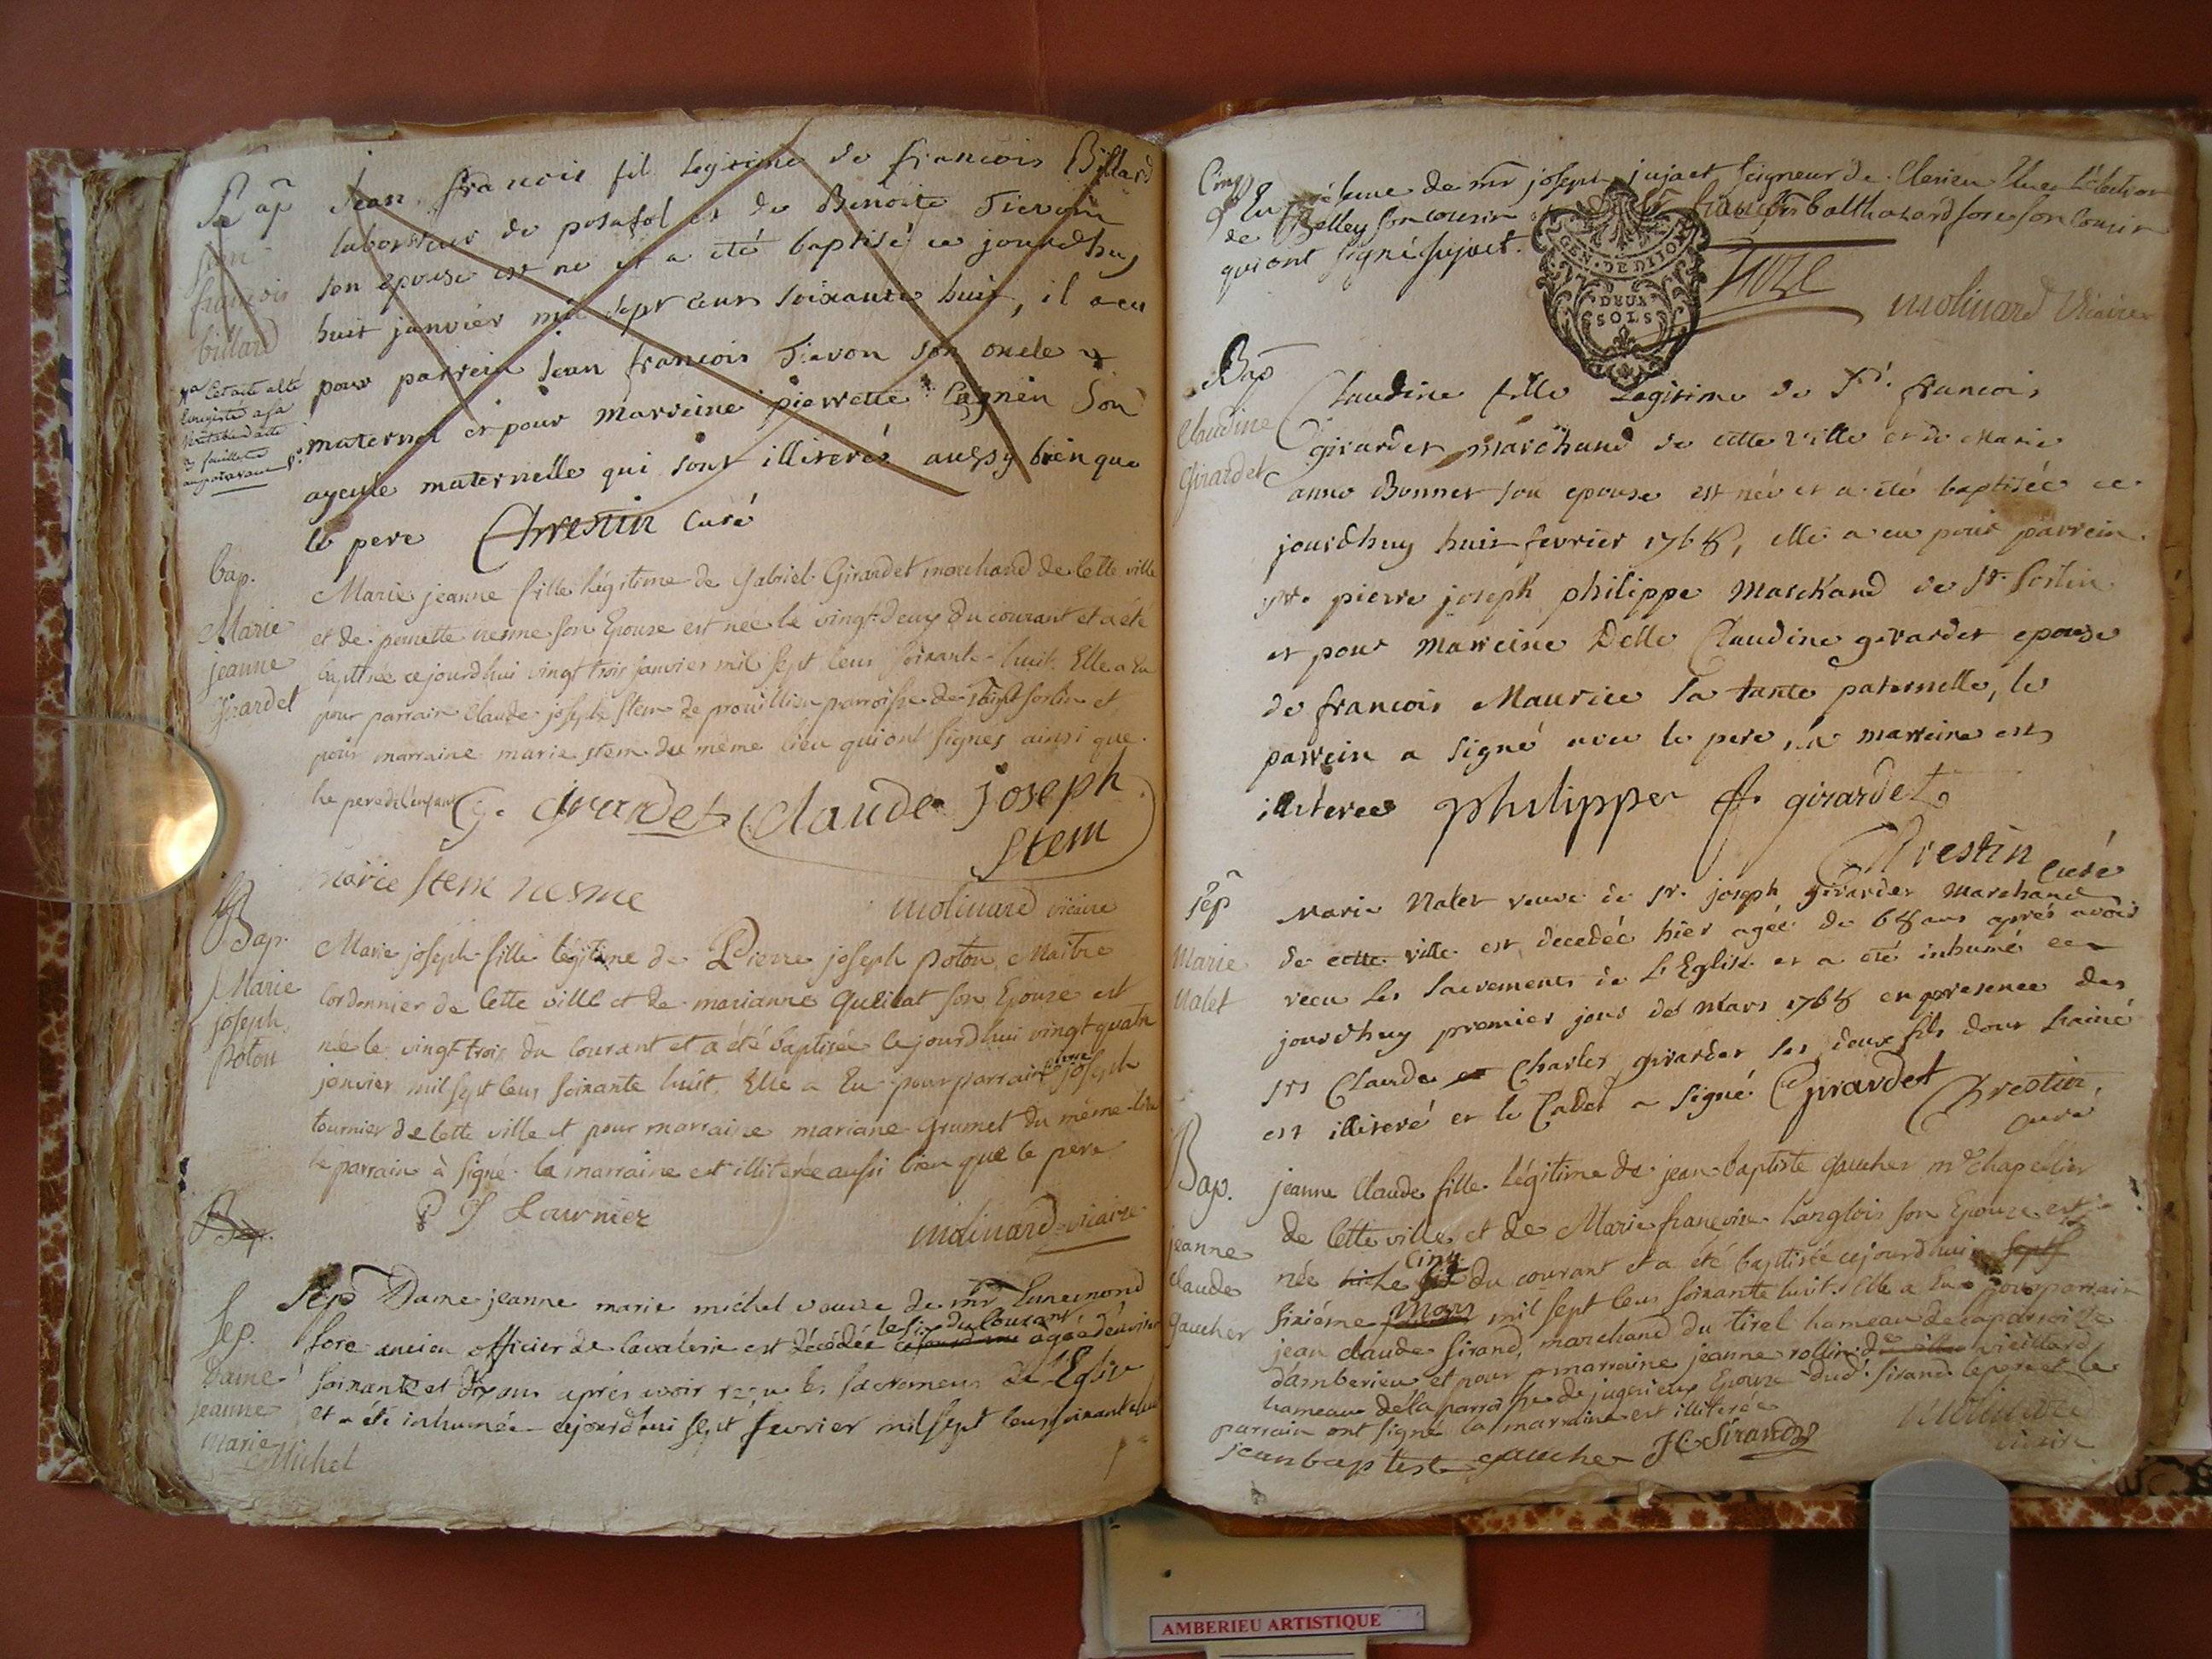 Bap
jean
francois
billard
Jean francois fil legitime de francois Billard
laboureur de posafol et de Benoite Tievon
son epouse est né et a eté baptisé ce jourdhuy
huit janvier mil sept cens soixante huit, il a eu
pour parrein Jean francois Tievon son oncle
maternel et pour marreine pierrette Cagnin Son
ayeule maternelle qui sont illiterés aussy bien que
le pere Chrestin Curé
bap.
Marie
jeanne
Girardet
Marie jeanne fille légitime de Gabriel Girardet marchand de Cette ville
et de pernette nesme son Epouse est née le vingt-deux du courant et a été
baptisée cejourdhui vingt trois janvier mil sept cens soixante-huit. Elle a Eu
pour parrain Claude joseph Stem de prouillieu parroisse de Saint Sorlin et
pour marraine marie stem du même lieu qui ont signés ainsi que
le pere de l'enfant G. Girardet Claude joseph
Stem
marie Stem nesme
molinard vicaire
Bap.
Marie
joseph
poton
Marie joseph fille légitime de Pierre joseph poton Maitre
Cordonnier de Cette ville et de marianne Quilat son Epouse est
née le vingt trois du Courant et a été baptisée Cejourdhui vingt quatre
janvier mil sept cens soixante huit. Elle a Eu pour parrain pierre joseph
tournier de Cette ville et pour marraine mariane Grumet du même lieu
le parrain à signé la marraine est illiterée aussi bien que le pere
P J Tournier
molinard vicaire
Bap.
Sep.
Dame
jeanne
marie
Michel
Sep Dame jeanne marie michel veuve de mr Ennemond
fore ancien officier de Cavalerie est décédée le six du Courant agée d'environ
soixante et dix ans après avoir reçu les sacremens de l'Eglise
et a été inhumée cejourdhui sept fevrier mil sept cens soixante huit
En présence de mr joseph jujaet Seigneur de Clerieu
de Belley son cousin françois balthazard fore son Cousin
qui ont signé jujaet.
GEN. DE DIJON
DEUX
SOLS
fore
molinard Vicaire
Bap
Claudine
Girardet
Claudine fille Legitime de Sr. francois
girardet marchand de cette ville et de Marie
anne Bonnet son epouse est née et a eté baptisée ce
jourdhuy huit fevrier 1768, elle a eu pour parrein
Sr. pierre joseph philippe Marchand de St. Sorlin
et pour marreine Delle Claudine girardet epouse
de francois Maurice sa tante paternelle, le
parrein a signé avec le pere, la marreine est
illiteree philippe f. girardet
Chrestin Curé
Sep
Marie
Nalet
Marie Nalet veuve de Sr. joseph girardet Marchand
de cette ville est decedée hier agée de 68 ans après avoir
recu les sacrements de L'Eglise et a eté inhumé ce
jourdhuy premier jour de Mars 1768 en presence des
srs Claude et Charles girardet ses deux fils dont l'ainé
est illiteré et le Cadet a signé Girardet Chrestin,
Curé
Bap.
jeanne
Claude
Gaucher
jeanne Claude fille légitime de jean baptiste Gaucher me Chapellier
de Cette ville et de Marie françoise Langlois son Epouse est
née le Cinq du courant et a été baptisée cejourdhui sept
sixiéme Mars mil sept cens soixante huit. Elle a Eu pour parrain
jean claude Sirand, marchand du tiret hameau de la parroisse
d'amberieu et pour marraine jeanne rollin de vieillard
hameau de la parroisse de jugerieux Epouse dud. Sirand le pere et le
parrain ont signé la marraine est illiterée
jean baptiste gaucher JC. Sirand
molinard
vicaire
AMBERIEU ARTISTIQUE